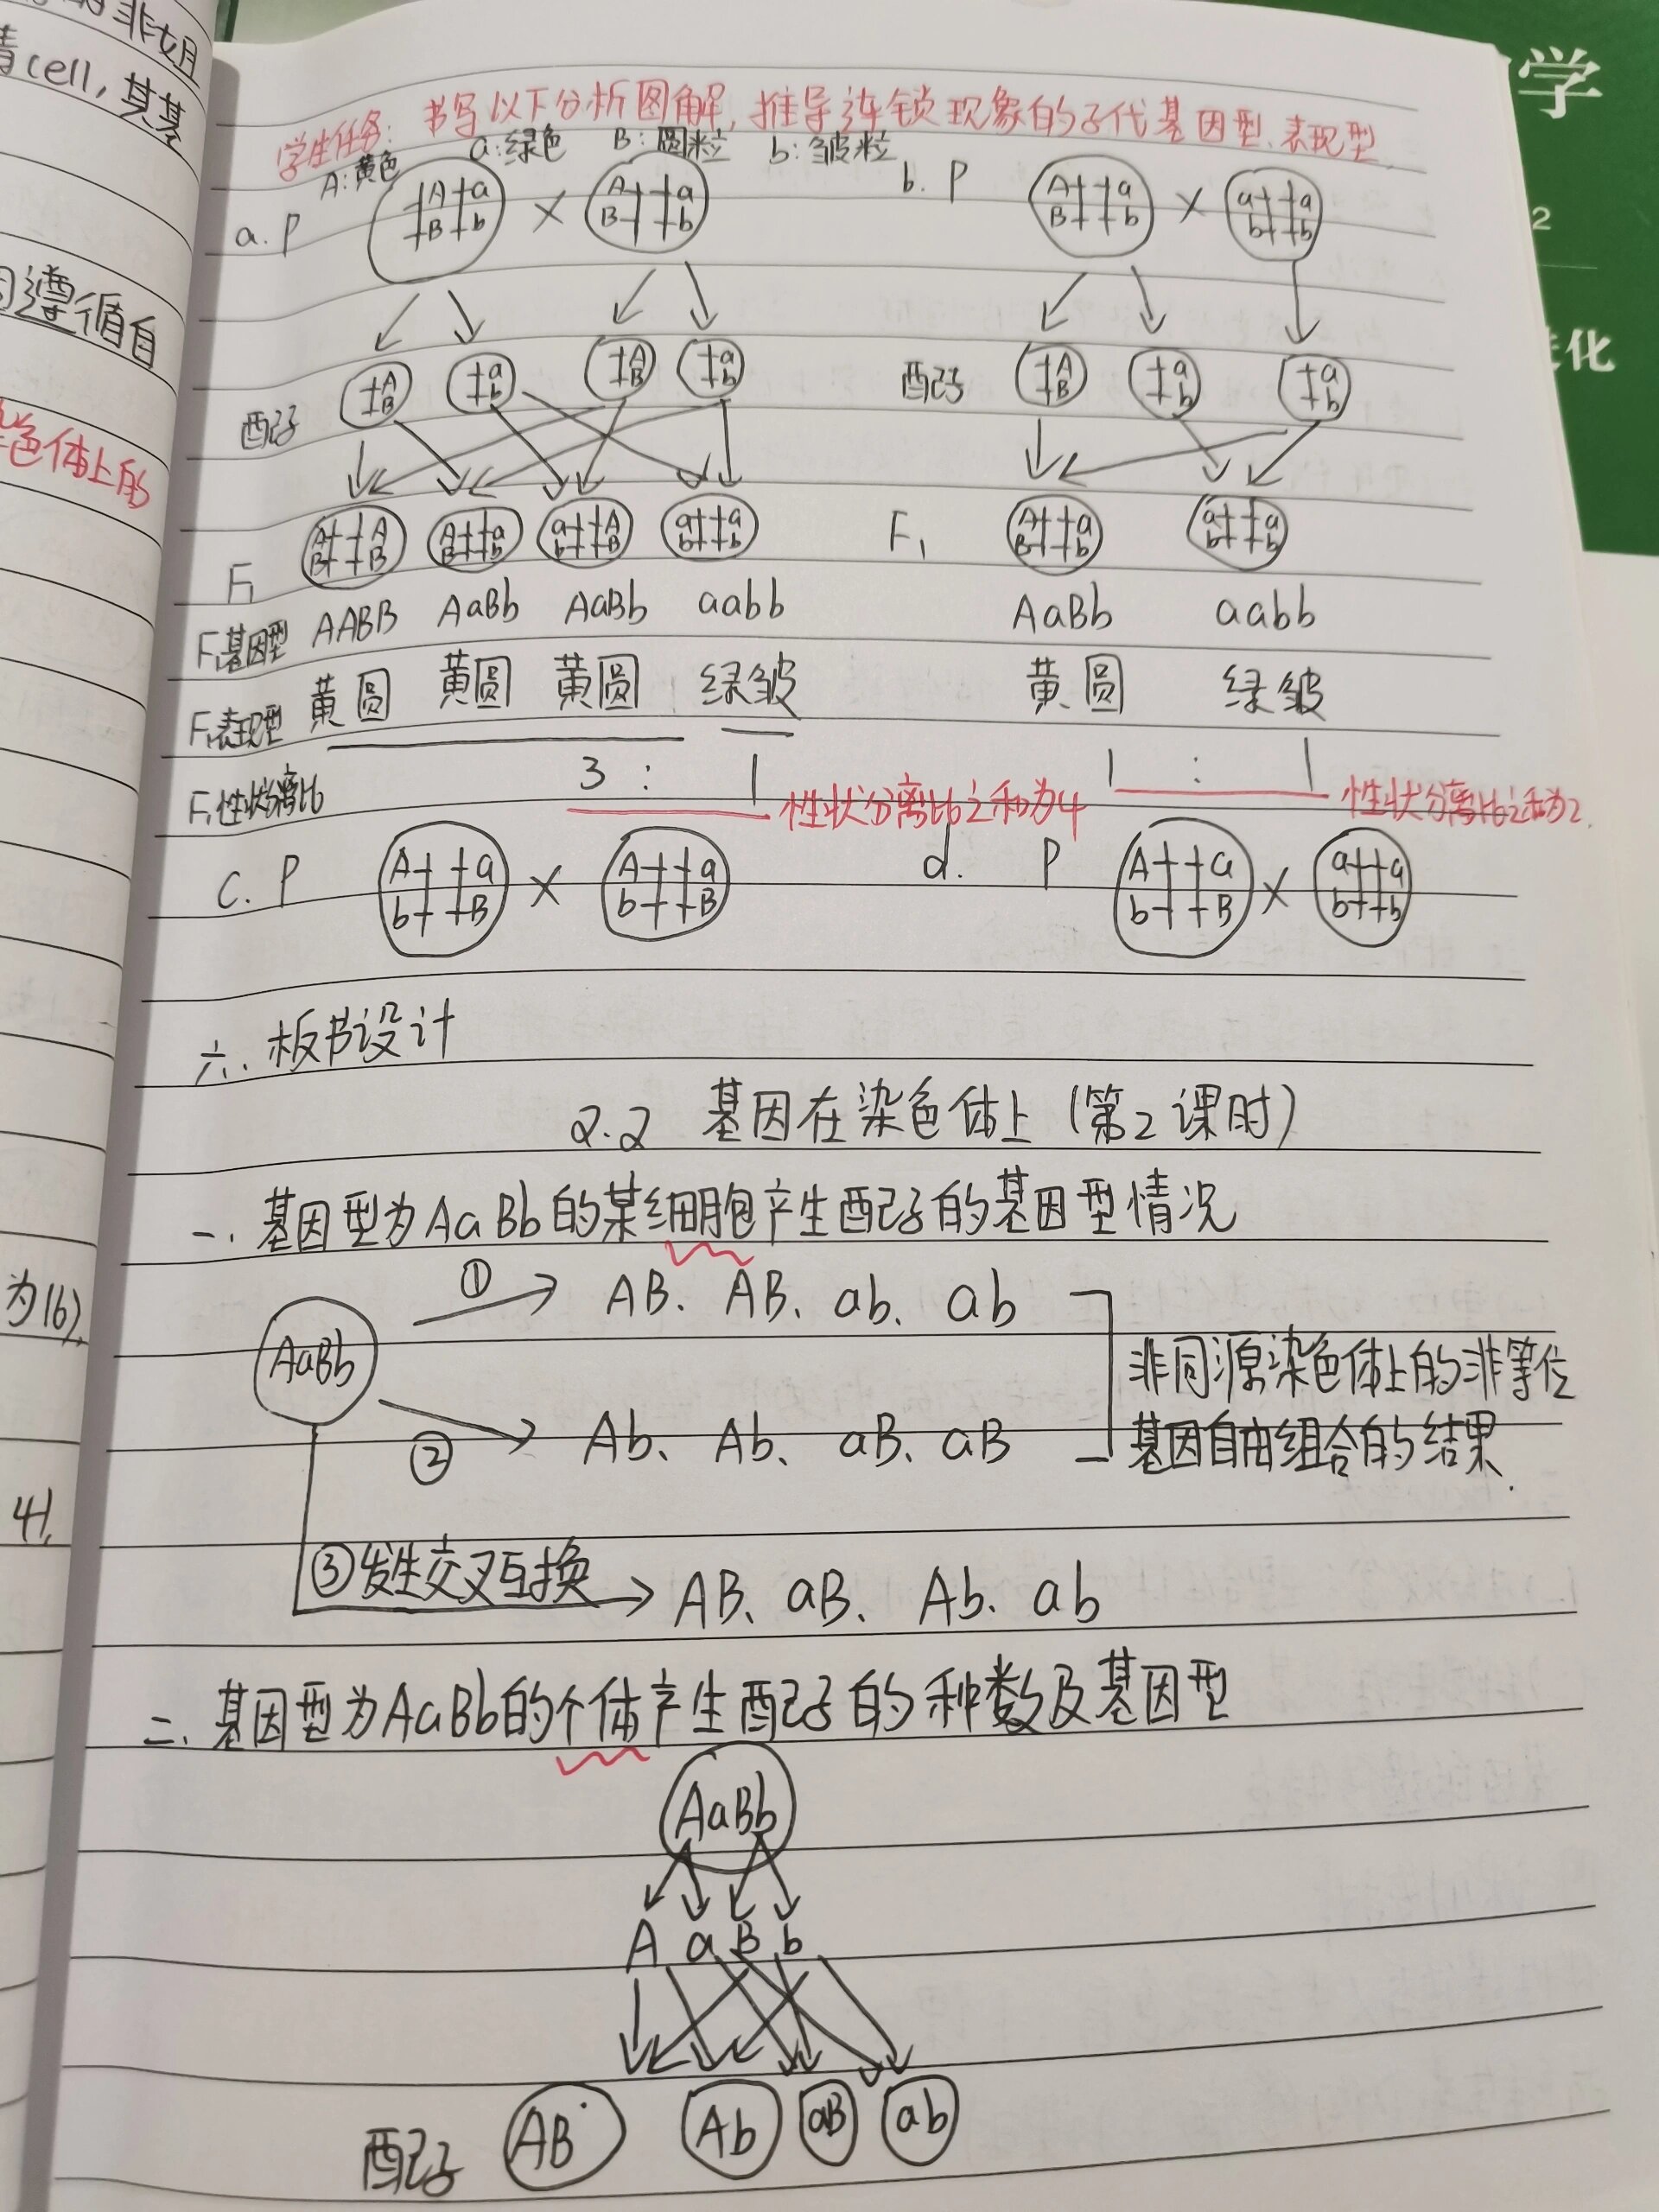 的非姐
精cell,其基
因遵循自
染色体上的
为16).
41.
学
2
进化
学生任务: 书写以下分析图解,推导连锁现象的子代基因型、表现型
A:黄色 a:绿色 B:圆粒 b:皱粒
a. P A a B b × A a B b
b. P A a B b × a a b b
配子 A B a b A B a b
配子 A B a b a b
F₁ A A B B A a B b a A b B a a b b
F₁ A a B b a a b b
F₁基因型 AABB AaBb AaBb aabb
AaBb aabb
F₁表现型 黄圆 黄圆 黄圆 绿皱
黄圆 绿皱
F₁性状分离比 3 : 1 性状分离比之和为4
1 : 1 性状分离比之和为2.
c. P A a b B × A a b B
d. P A a b B × a a b b
六. 板书设计
2.2 基因在染色体上(第2课时)
一. 基因型为AaBb的某细胞产生配子的基因型情况
AaBb
① AB、AB、ab、ab
② Ab、Ab、aB、aB
非同源染色体上的非等位
基因自由组合的结果.
③发生交叉互换 AB、aB、Ab、ab
二. 基因型为AaBb的个体产生配子的种数及基因型
AaBb
A a B b
配子 AB Ab aB ab